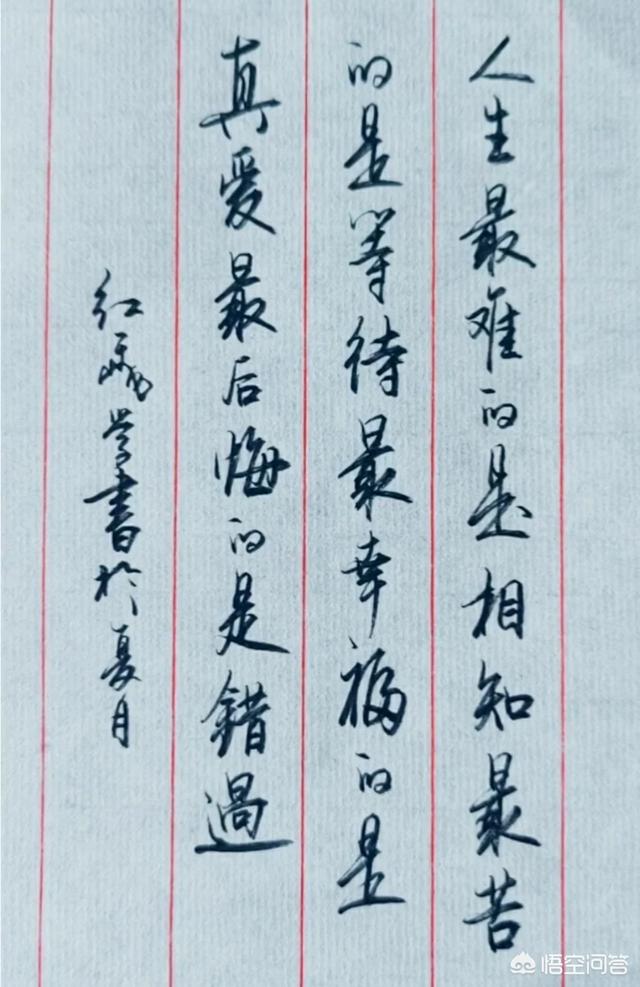 人生最难的是相知最苦
的是等待最幸福的是
真爱最后悔的是錯過
红 学書於夏月
悟空问答